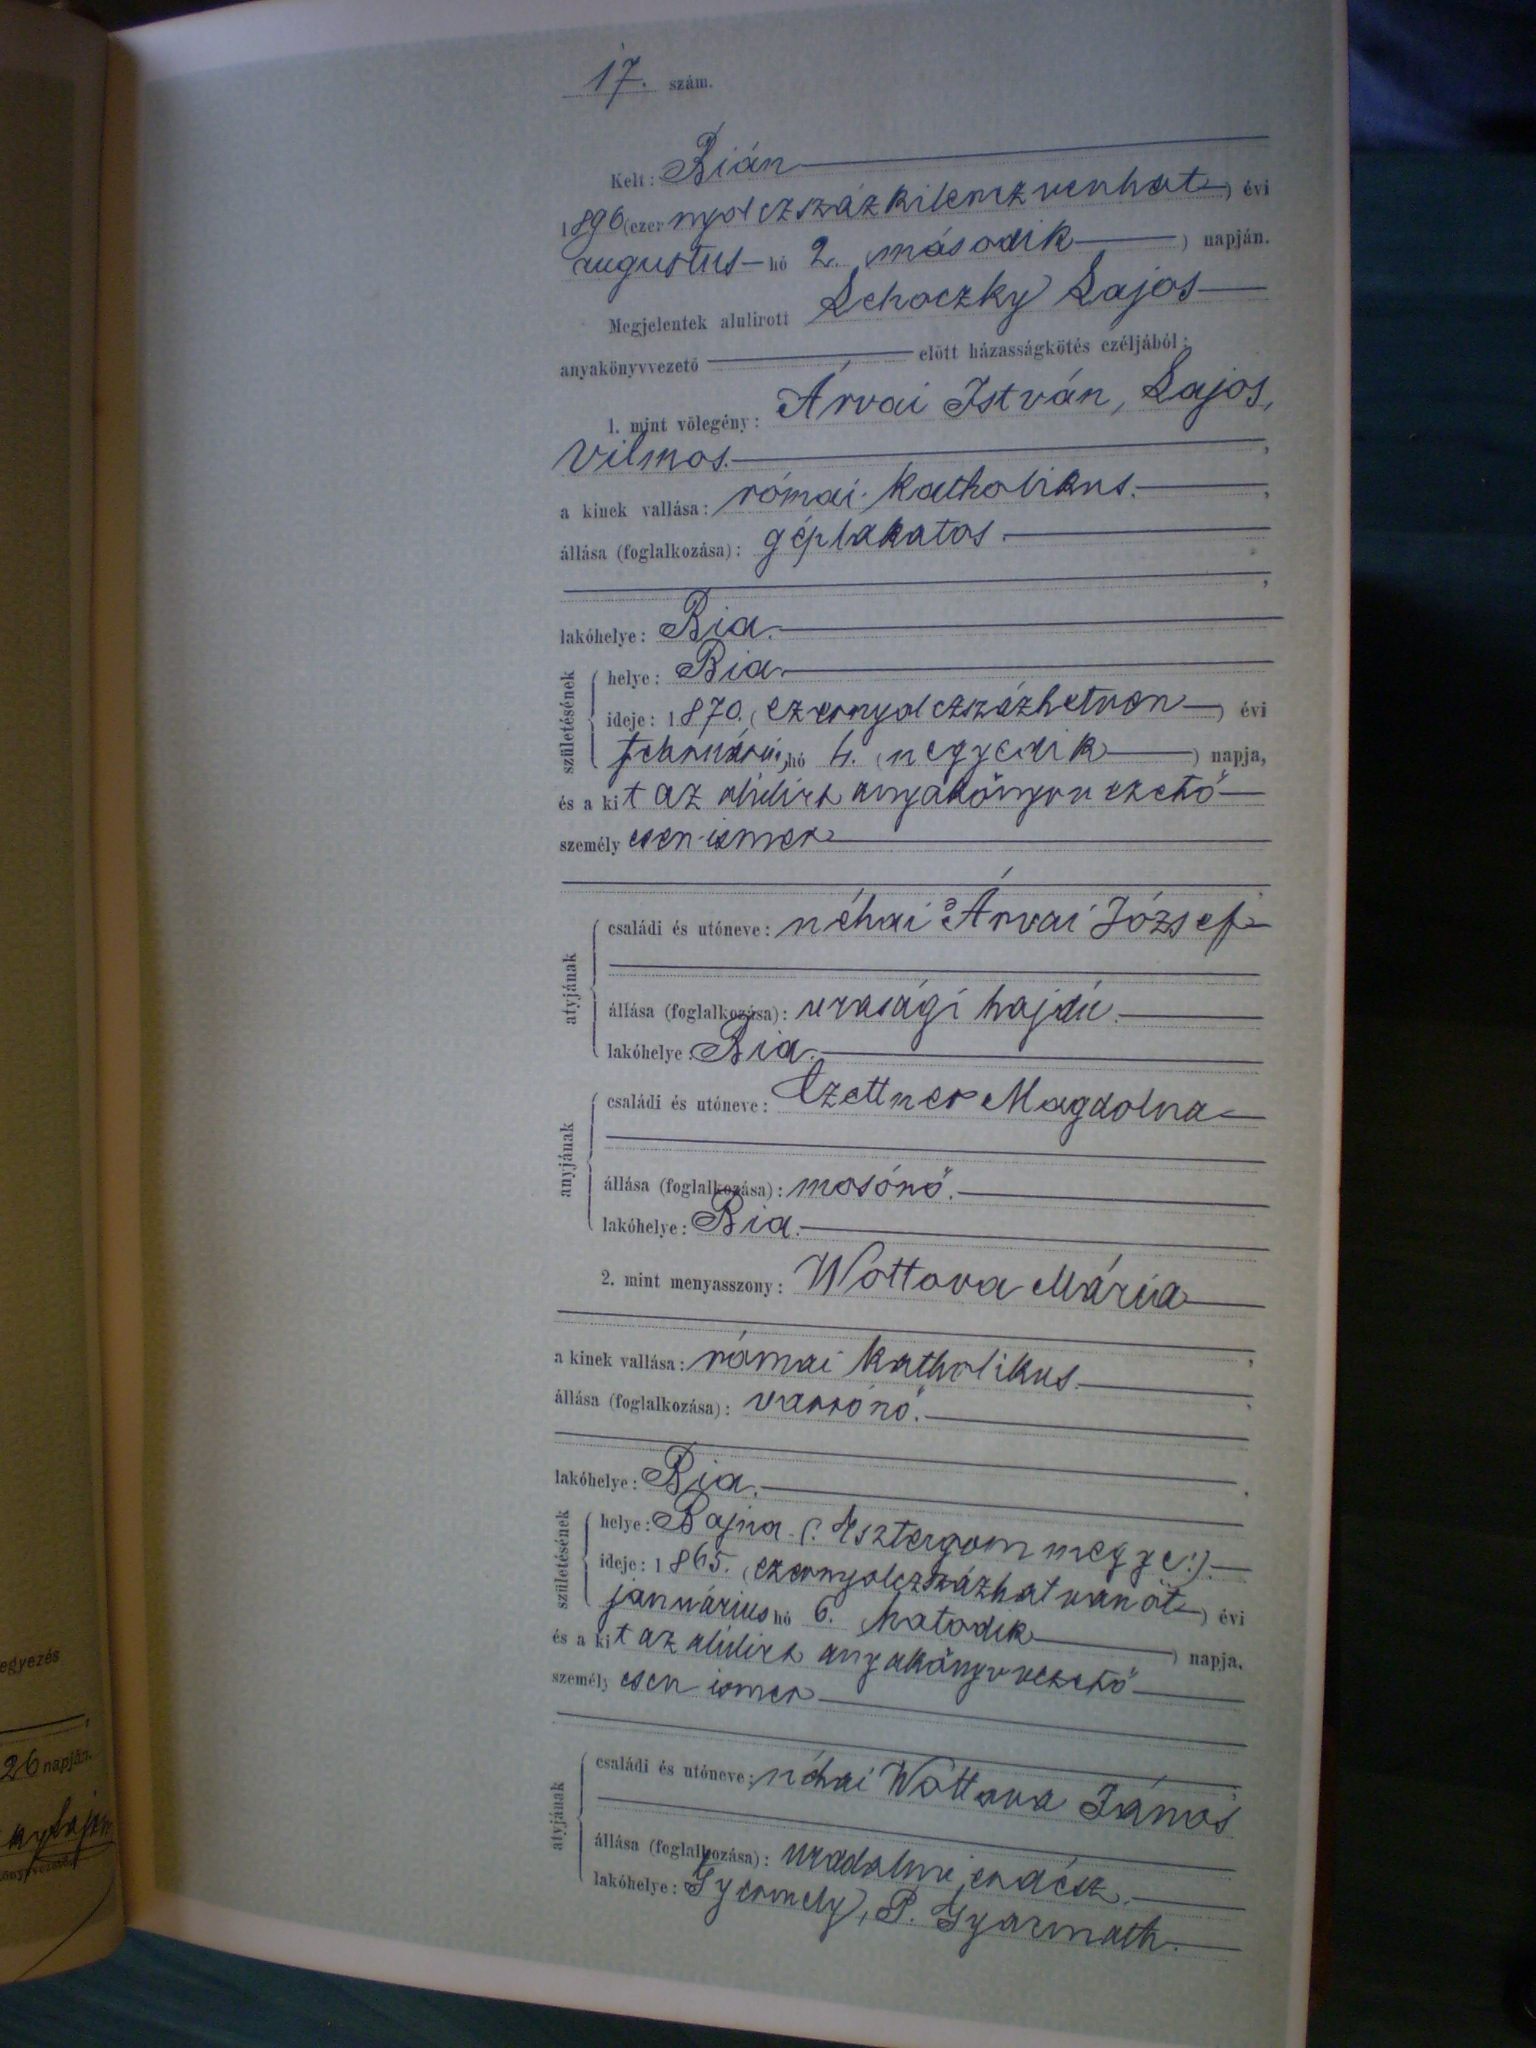 17. szám.
Kelt: Bián
1896 (ezer nyolczszázkilenczvenhat) évi
augustus hó 2. (második) napján.
Megjelentek alulirott Schoczky Lajos
anyakönyvvezető előtt házasságkötés czéljából:
1. mint vőlegény: Árvai István, Lajos,
Vilmos.
a kinek vallása: római katholikus.
állása (foglalkozása): géplakatos.
lakóhelye: Bia.
születésének
helye: Bia.
ideje: 1870. (ezernyolczszázhetven) évi
februárius hó 4. (negyedik) napja,
és a kit az alulirt anyakönyvvezető
személyesen ismer
atyjának
családi és utóneve: néhai Árvai József
állása (foglalkozása): urasági hajdú.
lakóhelye: Bia.
anyjának
családi és utóneve: Czettner Magdolna
állása (foglalkozása): mosónő.
lakóhelye: Bia.
2. mint menyasszony: Wottova Mária
a kinek vallása: római katholikus.
állása (foglalkozása): varrónő.
lakóhelye: Bia.
születésének
helye: Bajna (: Esztergom megye :).
ideje: 1865. (ezernyolczszázhatvanöt) évi
januárius hó 6. (hatodik) napja.
és a kit az alulirt anyakönyvvezető
személyesen ismer
atyjának
családi és utóneve: néhai Wottova János
állása (foglalkozása): uradalmi erdész.
lakóhelye: Gyermely, P. Gyarmath.
egyezés
26 napján.